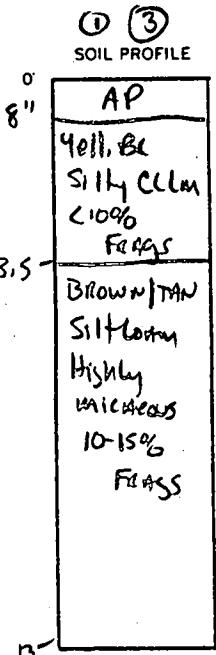 ① ③
SOIL PROFILE
0'
AP
8"
Yell. Br
Silty ClLm
<10%
FRAGS
3.5
BROWN/TAN
Silt loam
Highly
MICACEOUS
10-15%
FRAGS
13